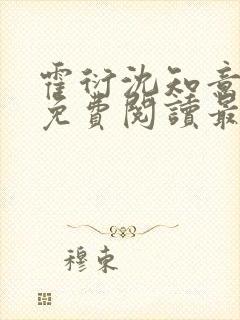 霍衍沈知意
免費閱讀最
穆東